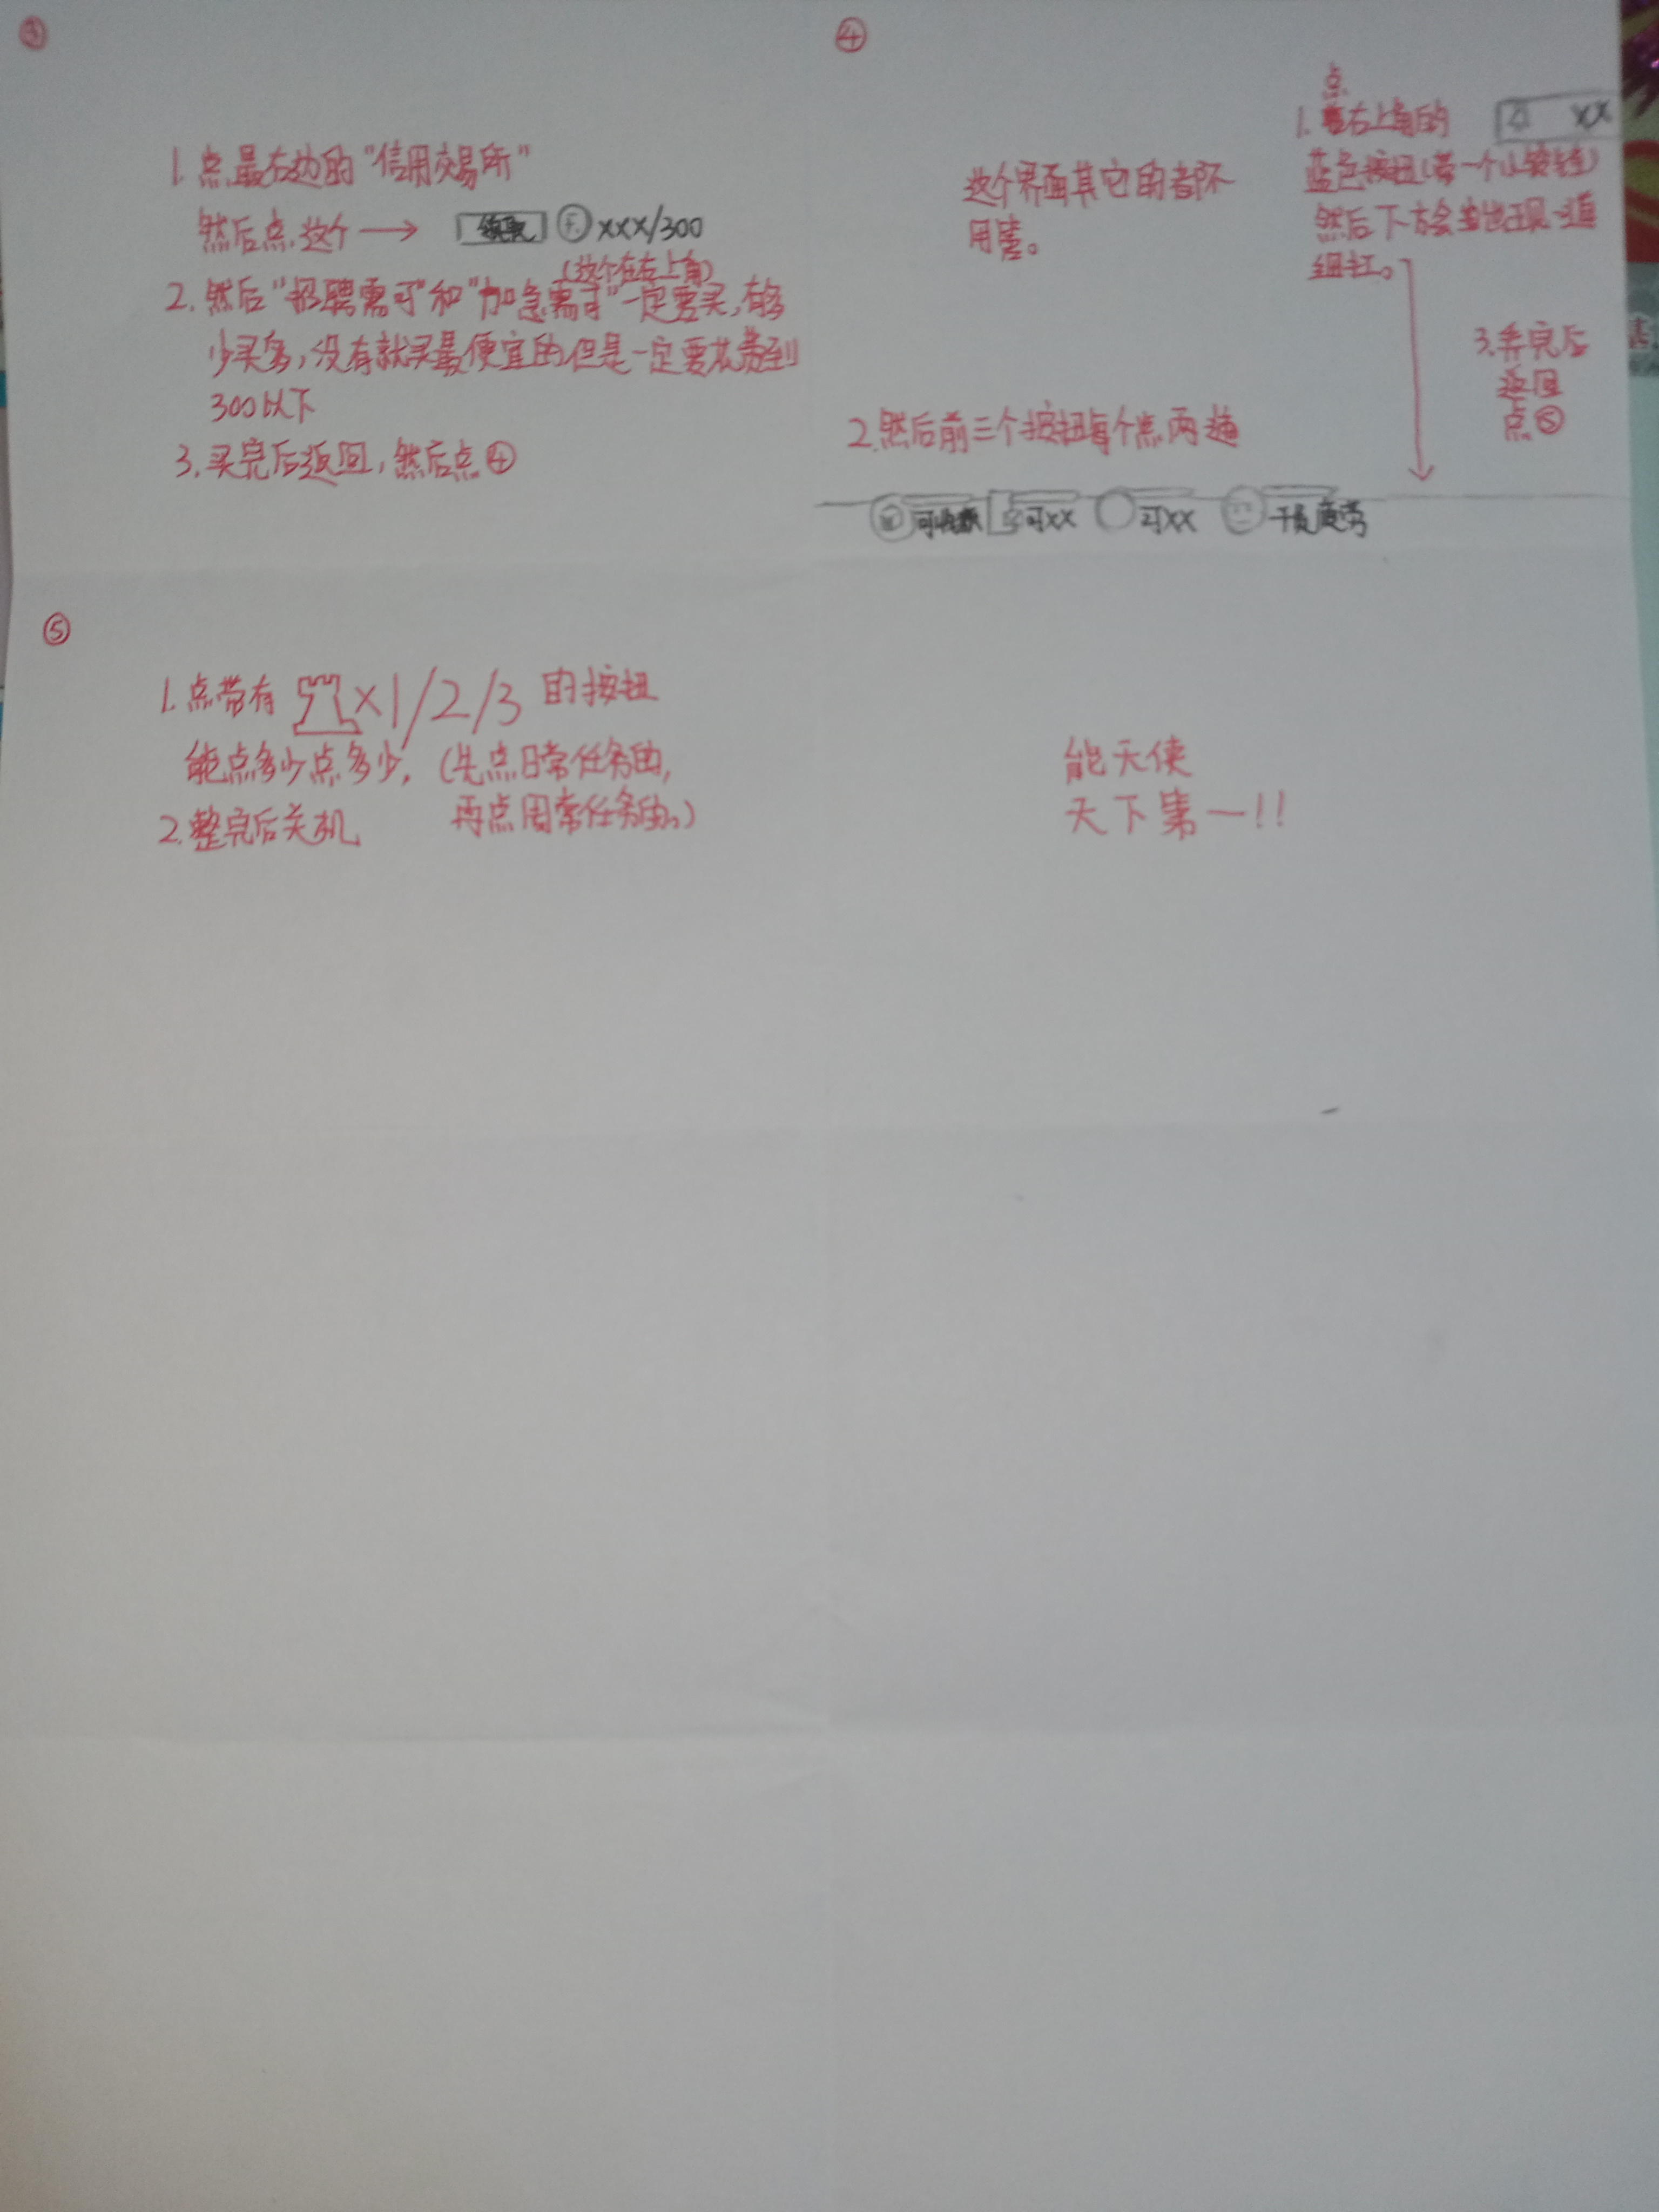 ③
1.点最右边的"信用交易所"
然后点这个→ 领取 xxx/300
(这个在右上角)
2.然后"招聘需可"和"加急需可"一定要买,有多
少买多,没有就买最便宜的但是一定要花费到
300以下
3.买完后返回,然后点④
④
点
1.右上角的 xx
蓝色按钮(带一个小铃铛)
然后下方会出现一道
蓝杠。
这个界面其它的都不
用管。
2.然后前三个按钮每个点两遍
3.弄完后
返回
点⑤
可收获 可xx 可xx 干员疲劳
⑤
1.点带有 x1/2/3 的按钮
能点多少点多少,(先点日常任务的,
再点周常任务的。)
2.整完后关机
能天使
天下第一!!